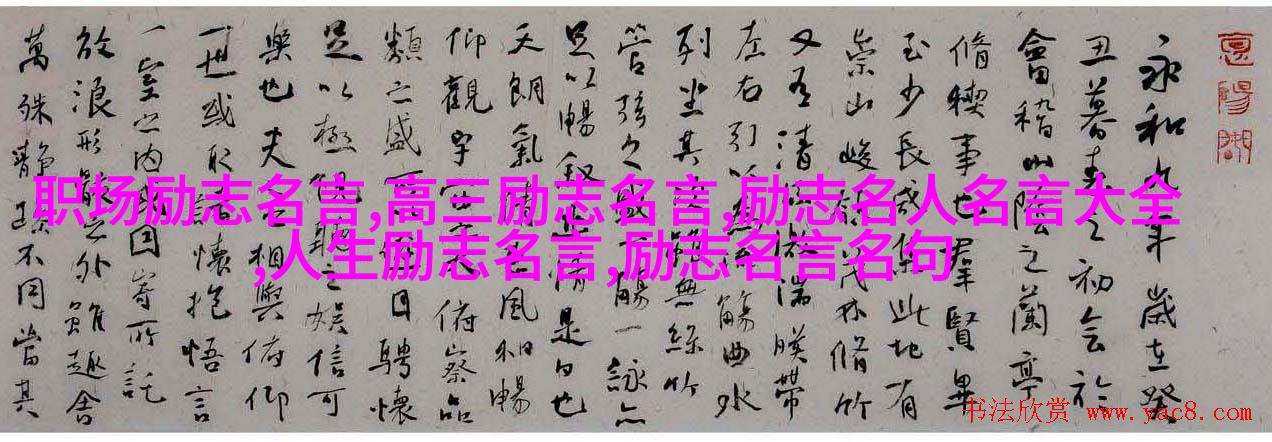 永和九年歲在癸
丑暮春之初會於
會稽山陰之蘭亭
脩稧事也羣賢畢
至少長咸集此地有
崇山峻領茂林脩竹
又有清流激湍暎帶
左右引以為流觴曲水
列坐其次雖無絲竹
管弦之盛一觴一詠亦
足以暢叙幽情是日也
天朗氣清惠風和暢
仰觀宇宙之大俯察品
類之盛所以遊目騁懷
足以極視聽之娛信可
樂也夫人之相與俯仰
一世或取諸懷抱悟言
一室之内或因寄所託
放浪形骸之外雖趣舍
萬殊靜躁不同當其
职场励志名言,高三励志名言,励志名人名言大全
,人生励志名言,励志名言名句
书法欣赏 www.yac8.com